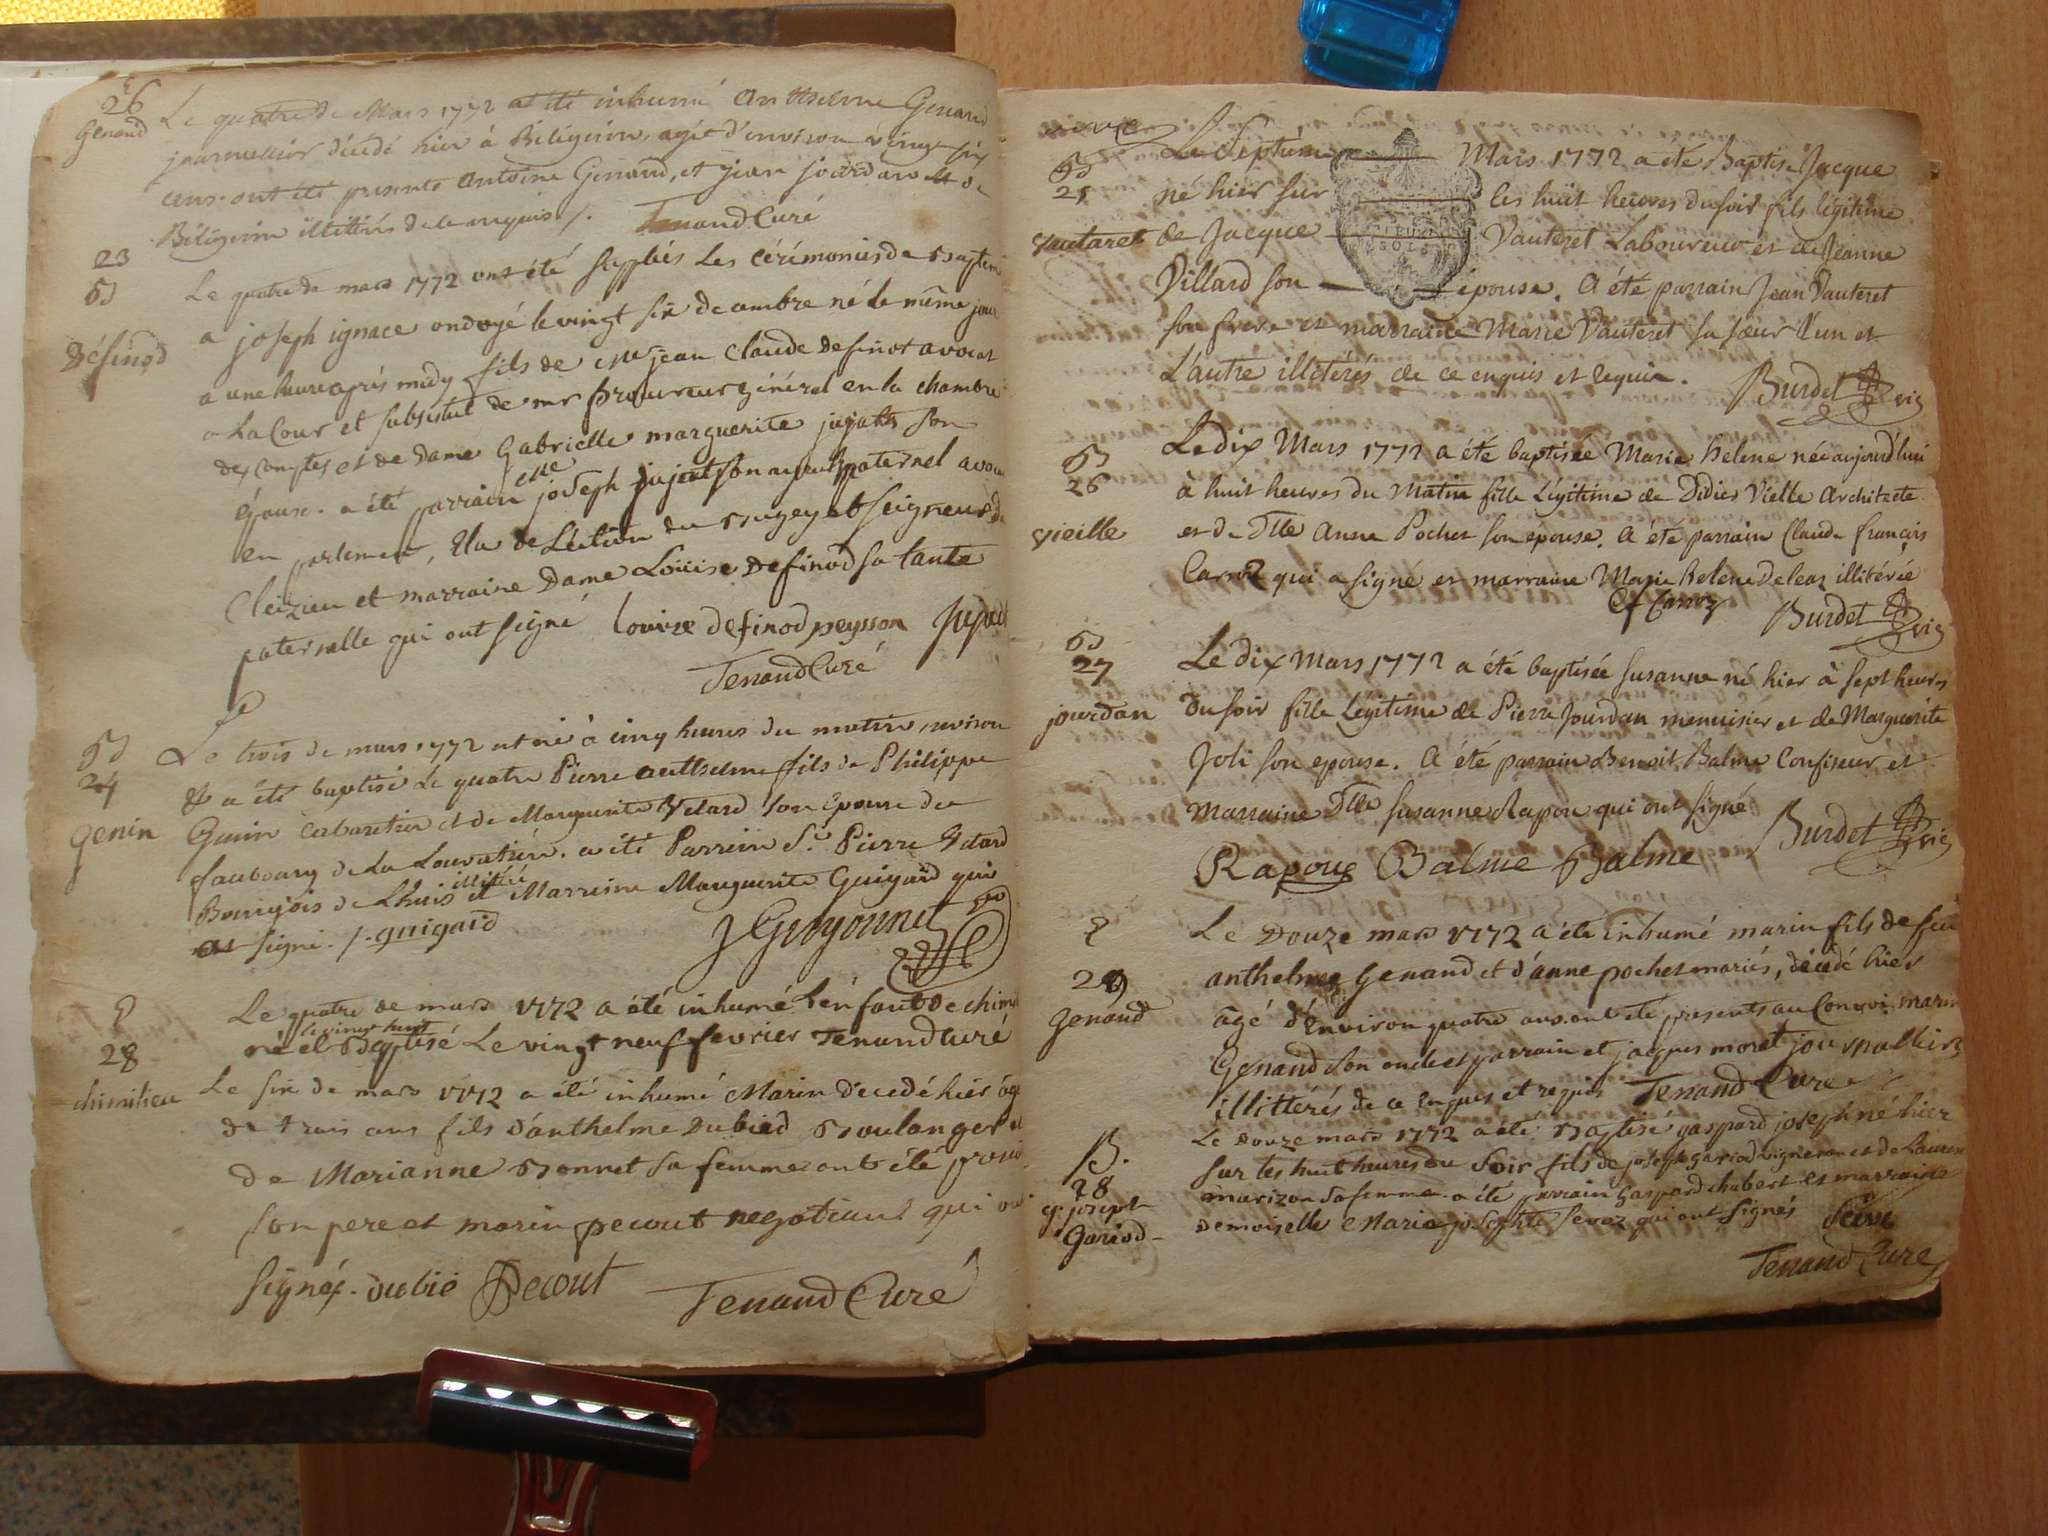 26
Genand
Le quatre de Mars 1772 at été inhumé Anthelme Genand
journallier décédé hier à Béligneux, agé d'environ vingt six
ans. ont été presents Antoine Genand, et jean jourdan
illitirés de le enquis /. Tenand Curé
23
B
Définod
Le quatre de mars 1772 ont été supplées Les cérémonies de Baptem
a joseph ignace ondoyé le vingt six decembre né le même jour
a une heure après midy fils de Me jean Claude Definot avocat
a La Cour et substitut de mr procureur général en la chambre
des comptes et de Dame Gabrielle marguerite jujats son
épouse. a été parrain Me joseph jujat son ayeul paternel avocat
en parlement, Elu de L'ection du Bugey et seigneur de
Cleizieu et marraine Dame Loüise Definod sa tante
paternelle qui ont signé Louise definod peysson Jujat
Tenand Curé
Le
B
24
genin
Le trois de mars 1772 est né à cinq heures du matin environ
& a été baptisé Le quatre Pierre anthelme fils de Philippe
Genin Cabaretier et de Marguerite Vetard son Epouse du
faubourg de La Louvatière. a été Parrein Sr. Pierre Vetard
Bourgeois de Lhuis illitéré et Marreine Marguerite Guigard qui
a signé. /. guigard
J Guyonnet
28
chimilieu
Le quatre de mars 1772 a été inhumé L'enfant de chimi
né le vingt huit et Baptisé Le vingt neuf fevrier Tenand Curé
Le six de mars 1772 a été inhumé Marin décédé hier âgé
de trois ans fils d'anthelme Dubied Boulanger et
de Marianne Bonnet sa femme ont été presen
son pere et marin pecout negotiant qui ont
signéz. Dubié Pecout Tenand Curé
B
25
Vauteret
Le Septiem Mars 1772 a été Baptisé Jacque
né hier sur les huit heures du soir fils légitime
de Jacque Vauteret Laboureur et de Jeanne
Villard son épouse. A été parrain Jean Vauteret
son frere et marraine Marie Vauteret sa sœur l'un et
L'autre illitérés de ce enquis et requis. Burdet vic
B
26
vieille
Le dix Mars 1772 a été baptisée Marie helene née aujourd'hui
à huit heures du Matin fille Légitime de Didier Vielle Architecte
et de Dlle Anne Pochet son epouse. A été parrain Claude françois
Carroz qui a signé et marraine Marie helene Deleaz illitérée
Cf Carroz Burdet vic
B
27
jourdan
Le dix Mars 1772 a été baptisée Susanne né hier à sept heures
Du soir fille Légitime de Pierre Jourdan menuisier et de Marguerite
Joli son epouse. A été parrain Benoit Balme Confiseur et
Marraine Dlle Susanne Rapou qui ont signé
Rapoug Balme Balme Burdet vic
29
Genand
Le Douze mars 1772 a été inhumé marin fils de feu
anthelme Genand et d'anne pochet mariés, décédé hier
âgé d'Environ quatre ans. ont été presents au Convoi marin
Genand son oncle et parrain et jacques moret journallier
illittérés de ce Enquis et requis Tenand Curé
B.
28
g. joseph
Gariod
Le Douze mars 1772 a été Baptisé gaspard joseph né hier
sur les huit heures du soir fils de joseph gariod vigneron et de Lauren
marizon sa femme. a été parrain gaspard chubert et marraine
demoiselle Marie josephte Servoz qui ont signés
Tenand Curé